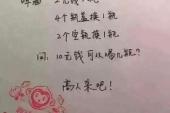 啤酒 2元钱1瓶
4个瓶盖换1瓶
2个空瓶换1瓶
问：10元钱可以喝几瓶？
高人来吧！